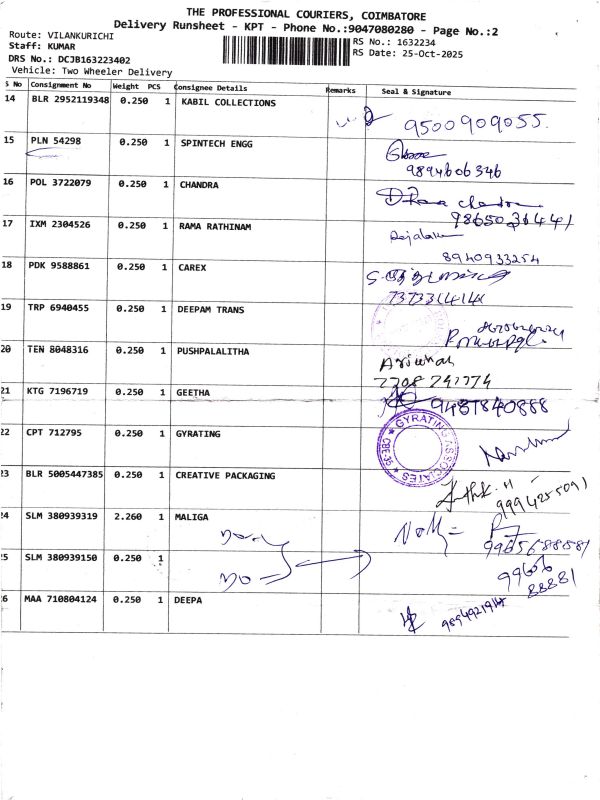 THE PROFESSIONAL COURIERS, COIMBATORE
Delivery Runsheet - KPT - Phone No.:9047080280 - Page No.:2
Route: VILANKURICHI
Staff: KUMAR
DRS No.: DCJB163223402
Vehicle: Two Wheeler Delivery
RS No.: 1632234
RS Date: 25-Oct-2025
S No Consignment No Weight PCS Consignee Details Remarks Seal & Signature
14 BLR 2952119348 0.250 1 KABIL COLLECTIONS 9500909055.
15 PLN 54298 0.250 1 SPINTECH ENGG
9894606346
16 POL 3722079 0.250 1 CHANDRA
9865036441
17 IXM 2304526 0.250 1 RAMA RATHINAM
8940933254
18 PDK 9588861 0.250 1 CAREX
19 TRP 6940455 0.250 1 DEEPAM TRANS
20 TEN 8048316 0.250 1 PUSHPALALITHA
21 KTG 7196719 0.250 1 GEETHA 9487840888
22 CPT 712795 0.250 1 GYRATING GYRATING ASSOCIATES
23 BLR 5005447385 0.250 1 CREATIVE PACKAGING
9994255091
24 SLM 380939319 2.260 1 MALIGA
9965688581
25 SLM 380939150 0.250 1
99656
88881
26 MAA 710804124 0.250 1 DEEPA